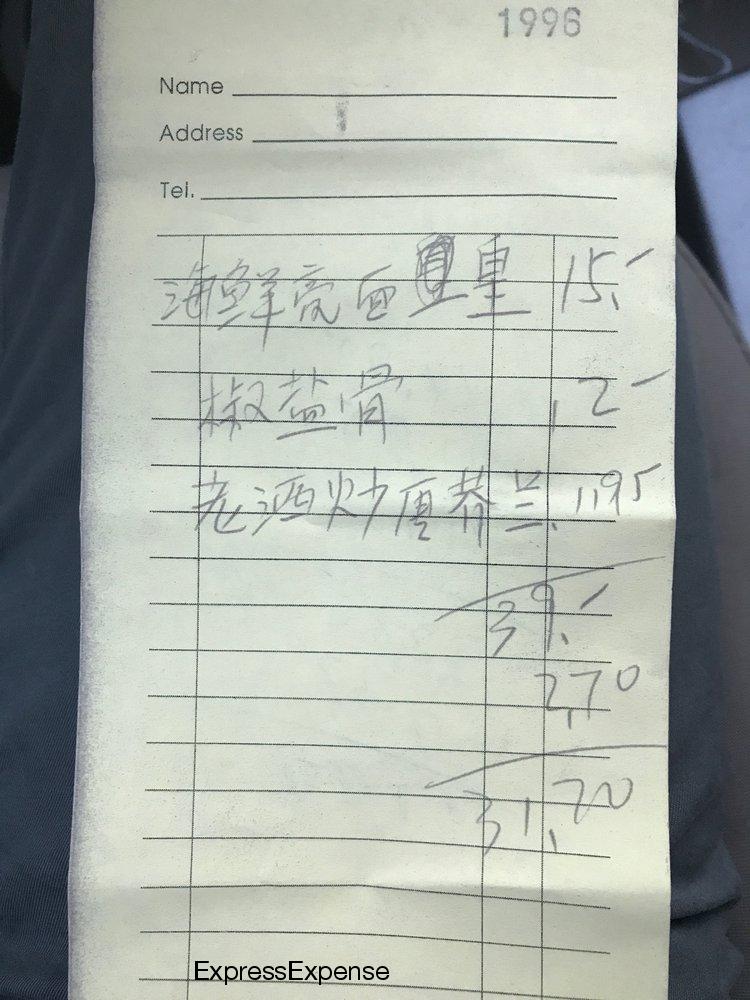 1996
Name
Address
Tel.
海鲜 面 皇 15.-
椒盐骨 12-
老酒炒唐芥兰 11.95
39.-
2.70
31.70
ExpressExpense